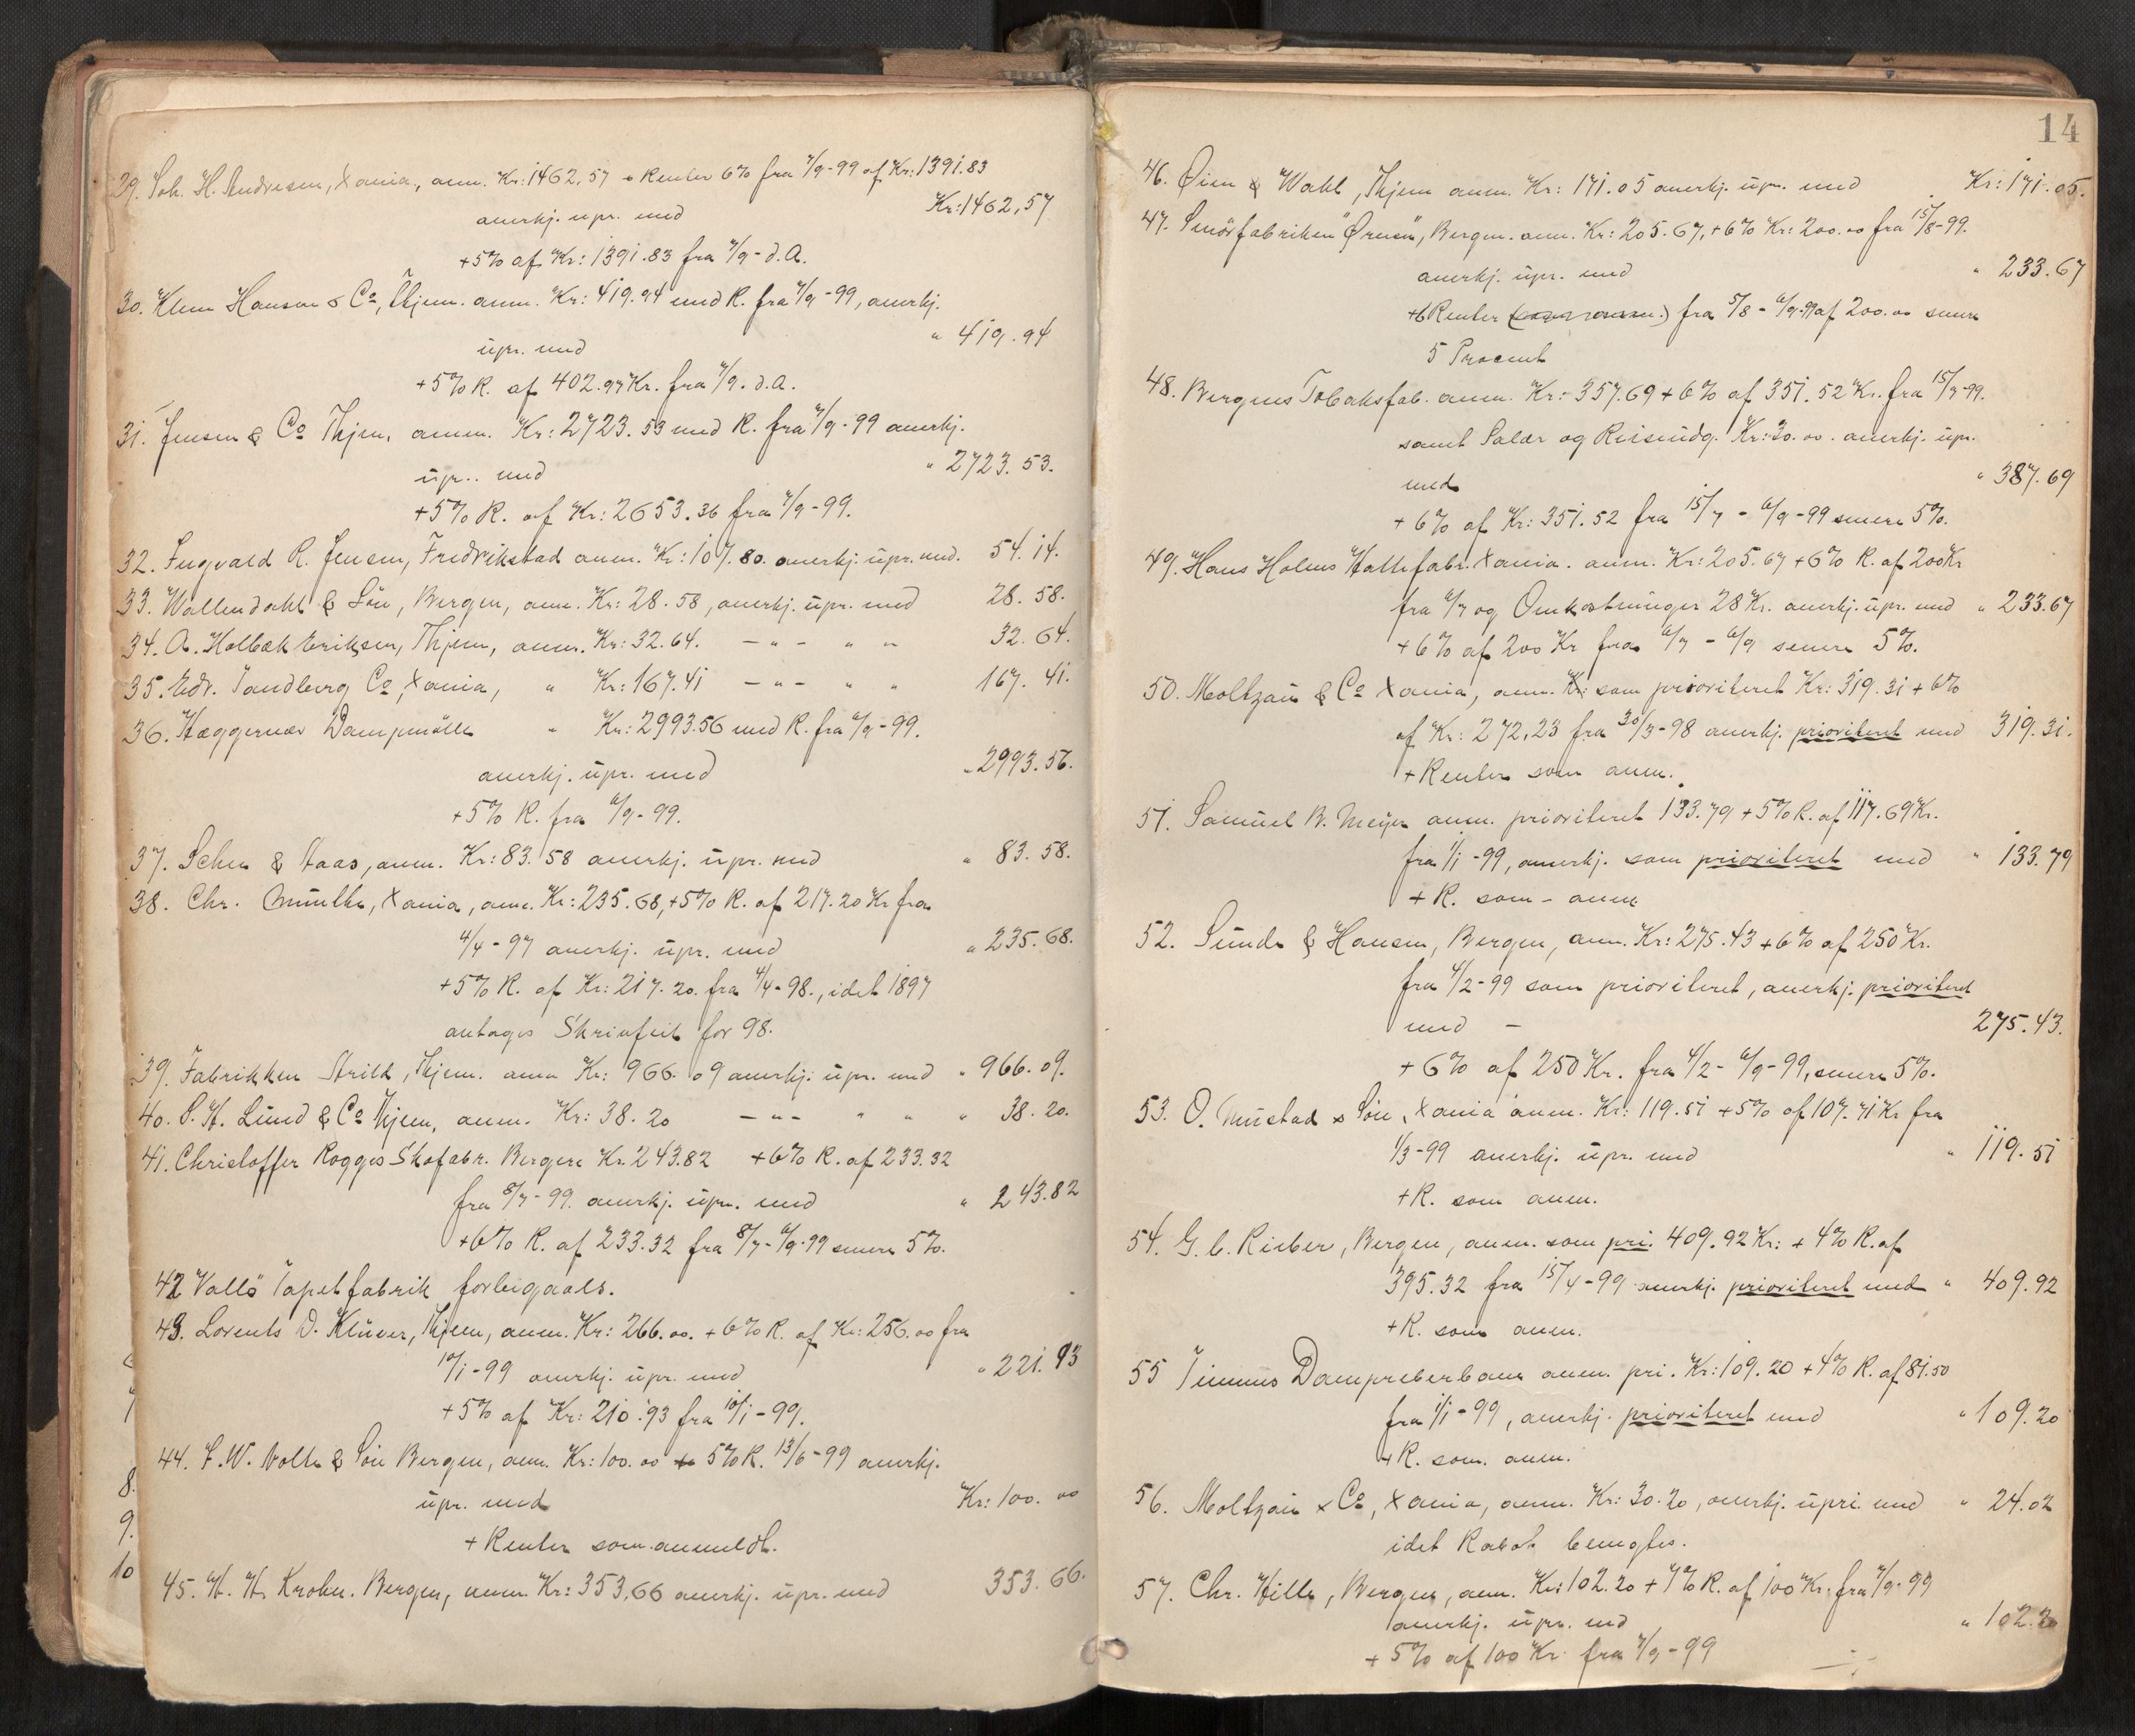 29. Joh. H. Andresen, Xania, anm. Kr: 1462,57 + Renter 6% fra 7/9-99 af Kr: 1391.83
anerkj. upr. med Kr: 1462,57
+5% af Kr: 1391.83 fra 7/9- d.A.
30. Klem Hansen & Co, Thjem. anm. Kr: 419.94 med R. fra 7/9-99, anerkj.
upr. med " 419.94
+5% R. af 402.97 Kr. fra 7/9. d.A.
31. Jensen & Co Thjem, anm. Kr: 2723.53 med R. fra 7/9-99 anerkj.
upr. med " 2723.53.
+5% R. af Kr: 2653.36 fra 7/9-99.
32. Ingvald R. Jensen, Fredrikstad anm. Kr: 107.80. anerkj. upr. med. 54.14.
33. Wallendahl & Sön, Bergen, anm. Kr: 28.58, anerkj. upr. med 28.58.
34. A. Holbæk Eriksen, Thjem, anm. Kr: 32.64. - " - " " 32.64.
35. Edv. Sandberg Co, Xania, " Kr: 167.41 - " - " " 167.41.
36. Hæggernæs Dampmölle " Kr: 2993.56 med R. fra 6/9-99.
anerkj. upr. med " 2993.56.
+5% R. fra 6/9-99.
37. & Aaas, anm. Kr: 83.58 anerkj. upr. med " 83.58.
38. Chr. Xania, anm. Kr: 235.68, +5% R. af 217.20 Kr fra
4/4-97 anerkj. upr. med " 235.68.
+5% R. af Kr: 217.20. fra 4/4-98., idet 1897
antages Skrivfeil for 98.
39. Fabrikken Arild, Thjem. anm Kr: 966.09 anerkj. upr. med " 966.09.
40. S. H. Lund & Co Thjem, anm. Kr: 38.20 - " - " " " 38.20.
41. Christoffer Rogges Skofabr. Bergen Kr. 243.82 +6% R. af 233.32
fra 8/7-99. anerkj. upr. med " 243.82
+6% R. af 233.32 fra 8/7-6/9-99 senere 5%.
42 Vallö Tapetfabrik forbigaaes.
43. Lorents D. Klüver, Thjem, anm. Kr: 266.00. +6% R. af Kr: 256.00 fra
10/1-99 anerkj. upr. med " 221.93
+5% af Kr: 210.93 fra 10/1-99.
44. F. W. & Sön Bergen, anm. Kr: 100.00 5% R. 13/6-99 anerkj.
upr. med Kr: 100.00
+ Renter som anmeldt.
45. H. H. Krohn. Bergen, anm. Kr: 353,66 anerkj. upr. med 353.66.
8.
9.
10
14
46. Öien & Wahl, Thjem anm. Kr: 171.05 anerkj. upr. med Kr: 171.05.
47. Smörfabriken "Örnen", Bergen. anm. Kr: 205.67, +6% Kr: 200.00 fra 15/8-99.
anerkj. upr. med " 233.67
+6 Renter fra 5/8-6/9-99 af 200.00 senere
5 Procent
48. Bergens Tobaksfab. anm. Kr: 357.69 + 6% af 351.52 Kr. fra 15/7-99.
samt Salær og Reiseudg. Kr: 30.00. anerkj. upr.
med " 387.69
+ 6% af Kr: 351.52 fra 15/7 - 6/9-99 senere 5%.
49. Hans Holms Hattefabr. Xania. anm. Kr: 205.67 +6% R. af 200 Kr
fra 6/7 og Omkostninger 28 Kr. anerkj. upr. med " 233.67
+6% af 200 Kr fra 6/7 - 6/9 senere 5%.
50. Moltzau & Co Xania, anm. som prioriteret Kr: 319.31 + 6%
af Kr: 272,23 fra 30/3-98 anerkj. prioriteret med 319.31.
+Renter som anm.
51. Samuel B. Meyer anm. prioriteret 133.79 +5% R. af 117.69 Kr.
fra 1/1-99, anerkj. som prioriteret med " 133.79
+ R. som - anm
52. Sunde & Hansen, Bergen, anm. Kr: 275.43 +6% af 250 Kr.
fra 4/2-99 som prioriteret, anerkj. prioriteret
med - 275.43.
+ 6% af 250 Kr. fra 4/2 - 6/9-99, senere 5%.
53. O. Mustad & Sön, Xania anm. Kr: 119.51 +5% af 107.71 Kr fra
1/3-99 anerkj. upr. med " 119.51
+R. som anm.
54. G. C. Rieber, Bergen, anm. som pri. 409.92 Kr: + 4% R. af
395.32 fra 15/4-99 anerkj. prioriteret med " 409.92
+R. som anm.
55 Timms Dampreberbane anm. pri. Kr: 109.20 +4% R. af 81.50
fra 1/1-99, anerkj. prioriteret med " 109.20
+R. som. anm.
56. Moltzau & Co, Xania, anm. Kr: 30.20, anerkj. upri. med " 24.02
idet Rabat
57. Chr. Hille, Bergen, anm. Kr: 102.20 + 7% R. af 100 Kr. fra 7/9-99
anerkj. upr. med " 102.20
+ 5% af 100 Kr fra 7/9-99